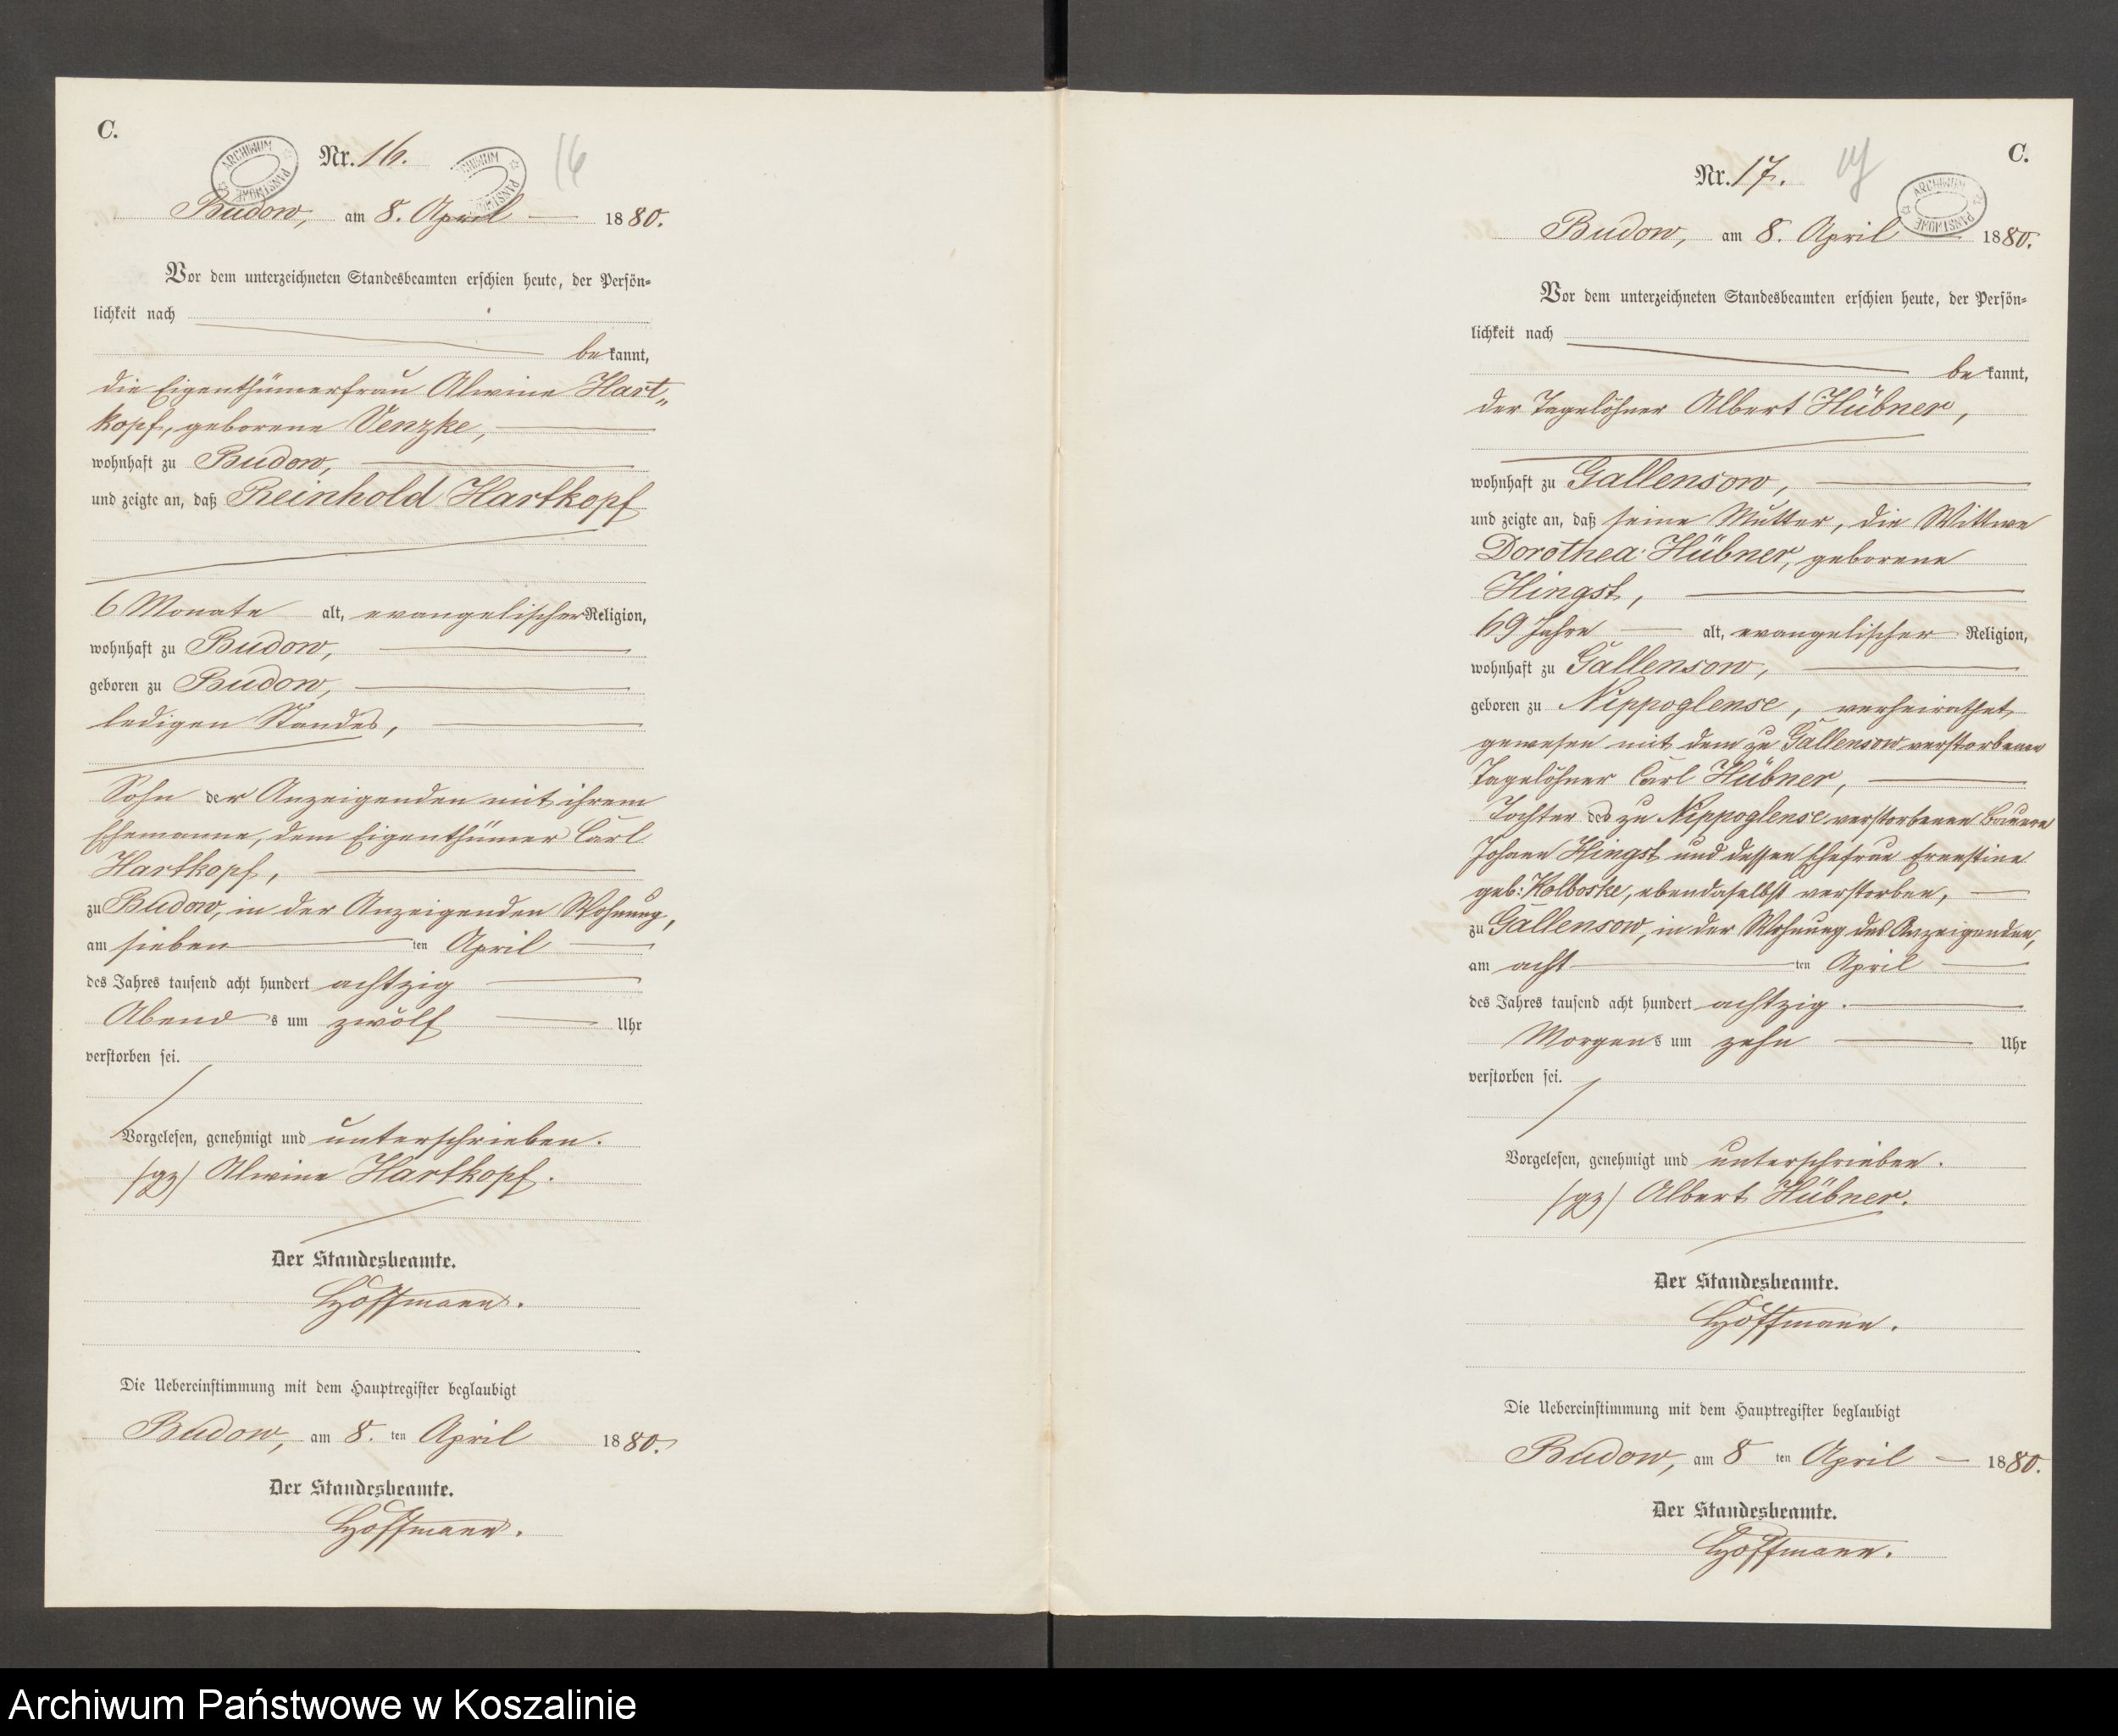 C.
Nr. 16.
16
ARCHIWUM PAŃSTWOWE
ARCHIWUM PAŃSTWOWE
Budow, am 8. April 1880.
Vor dem unterzeichneten Standesbeamten erschien heute, der Persön=
lichkeit nach
bekannt,
die Eigenthümerfrau Alwine Hart„
kopf, geborene Venzke,
wohnhaft zu Budow,
und zeigte an, daß Reinhold Hartkopf
6 Monate alt, evangelischer Religion,
wohnhaft zu Budow,
geboren zu Budow,
ledigen Standes,
Sohn der Anzeigenden mit ihrem
Ehemanne, dem Eigenthümer Carl
Hartkopf,
zu Budow, in der Anzeigenden Wohnung,
am sieben ten April
des Jahres tausend acht hundert achtzig
Abend s um zwölf Uhr
verstorben sei.
Vorgelesen, genehmigt und unterschrieben.
(gz) Alwine Hartkopf.
Der Standesbeamte.
Hoffmann.
Die Uebereinstimmung mit dem Hauptregister beglaubigt
Budow, am 8. ten April 1880.
Der Standesbeamte.
Hoffmann.
C.
Nr. 17.
ARCHIWUM PAŃSTWOWE
Budow, am 8. April 1880.
Vor dem unterzeichneten Standesbeamten erschien heute, der Persön=
lichkeit nach
bekannt,
der Tagelöhner Albert Hübner,
wohnhaft zu Gallensow,
und zeigte an, daß seine Mutter, die Wittwe
Dorothea Hübner, geborene
Hingst,
69 Jahre alt, evangelischer Religion,
wohnhaft zu Gallensow,
geboren zu Nippoglense, verheirathet
gewesen mit dem zu Gallensow verstorbenen
Tagelöhner Carl Hübner,
Tochter des zu Nippoglense verstorbenen Bauern
Johann Hingst und dessen Ehefrau Ernestine
geb: Kolboske, ebendaselbst verstorben,
zu Gallensow, in der Wohnung des Anzeigenden,
am acht ten April
des Jahres tausend acht hundert achtzig.
Morgens um zehn Uhr
verstorben sei.
Vorgelesen, genehmigt und unterschrieben.
(gz) Albert Hübner.
Der Standesbeamte.
Hoffmann.
Die Uebereinstimmung mit dem Hauptregister beglaubigt
Budow, am 8 ten April 1880.
Der Standesbeamte.
Hoffmann.
Archiwum Państwowe w Koszalinie